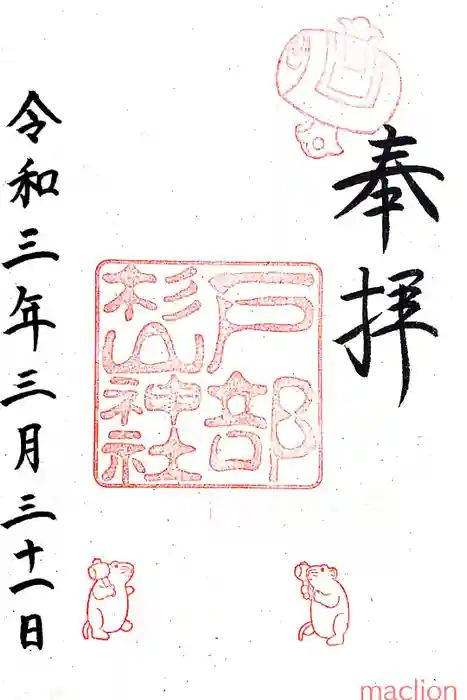 奉拝
戸部
杉山神社
令和三年三月三十一日
maclion